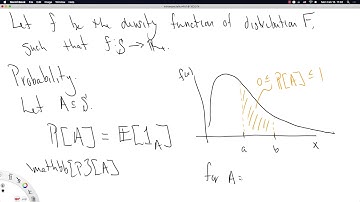 Let f be the density function of distribution F,
such that f: S → ℝ₊.
Probability.
Let A ⊆ S.
ℙ[A] = 𝔼[1_A]
mathbb{P}[A]
f(x)
0 ≤ ℙ[A] ≤ 1
a b x
for A =